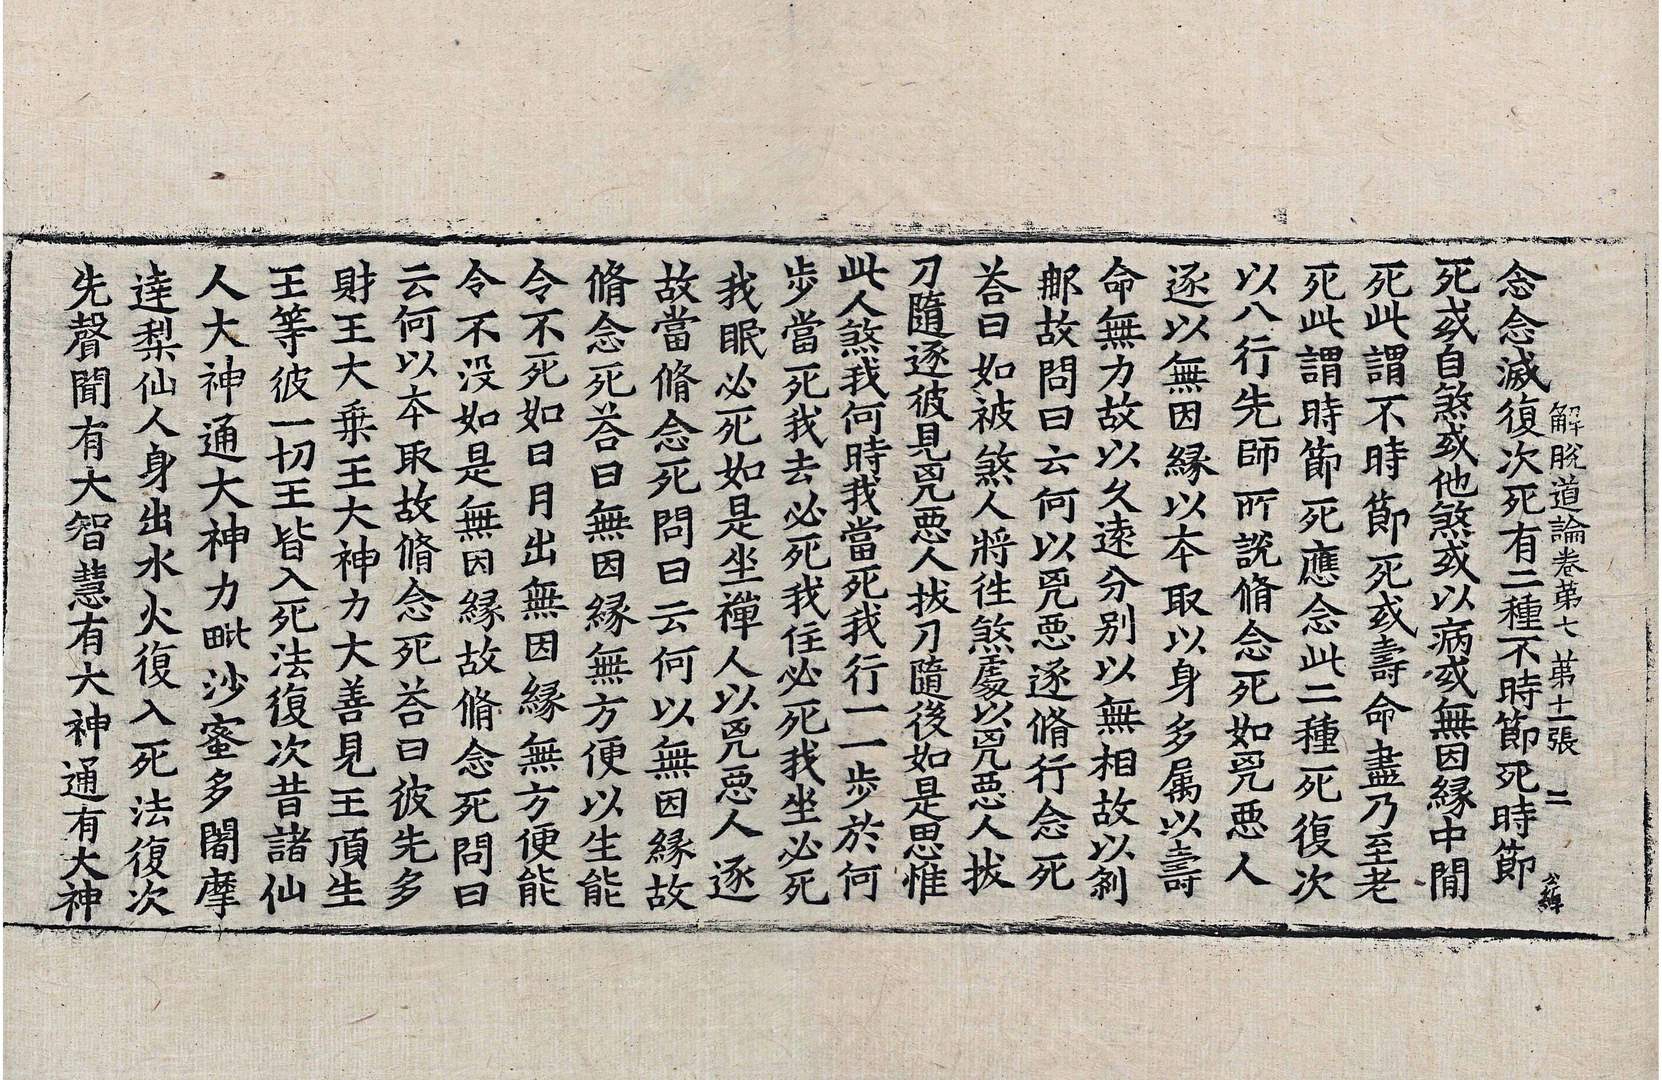 解脫道論卷第七 第十一張 二
念念滅復次死有二種不時節死時節
死或自煞或他煞或以病或無因縁中間
死此謂不時節死或壽命盡乃至老
死此謂時節死應念此二種死復次
以八行先師所說脩念死如兇惡人
逐以無因縁以夲取以身多属以壽
命無力故以久逺分別以無相故以剎
那故問曰云何以兇惡逐脩行念死
荅曰如被煞人將徃煞處以兇惡人拔
刀隨逐彼見兇惡人拔刀隨後如是思惟
此人煞我何時我當死我行一一步於何
步當死我去必死我住必死我坐必死
我眠必死如是坐禪人以兇惡人逐
故當脩念死問曰云何以無因縁故
脩念死荅曰無因縁無方便以生能
令不死如日月出無因縁無方便能
令不没如是無因縁故脩念死問曰
云何以夲取故脩念死荅曰彼先多
財王大乗王大神力大善見王頂生
王等彼一切王皆入死法復次昔諸仙
人大神通大神力毗沙蜜多闍摩
達梨仙人身出水火復入死法復次
先聲聞有大智慧有大神通有大神